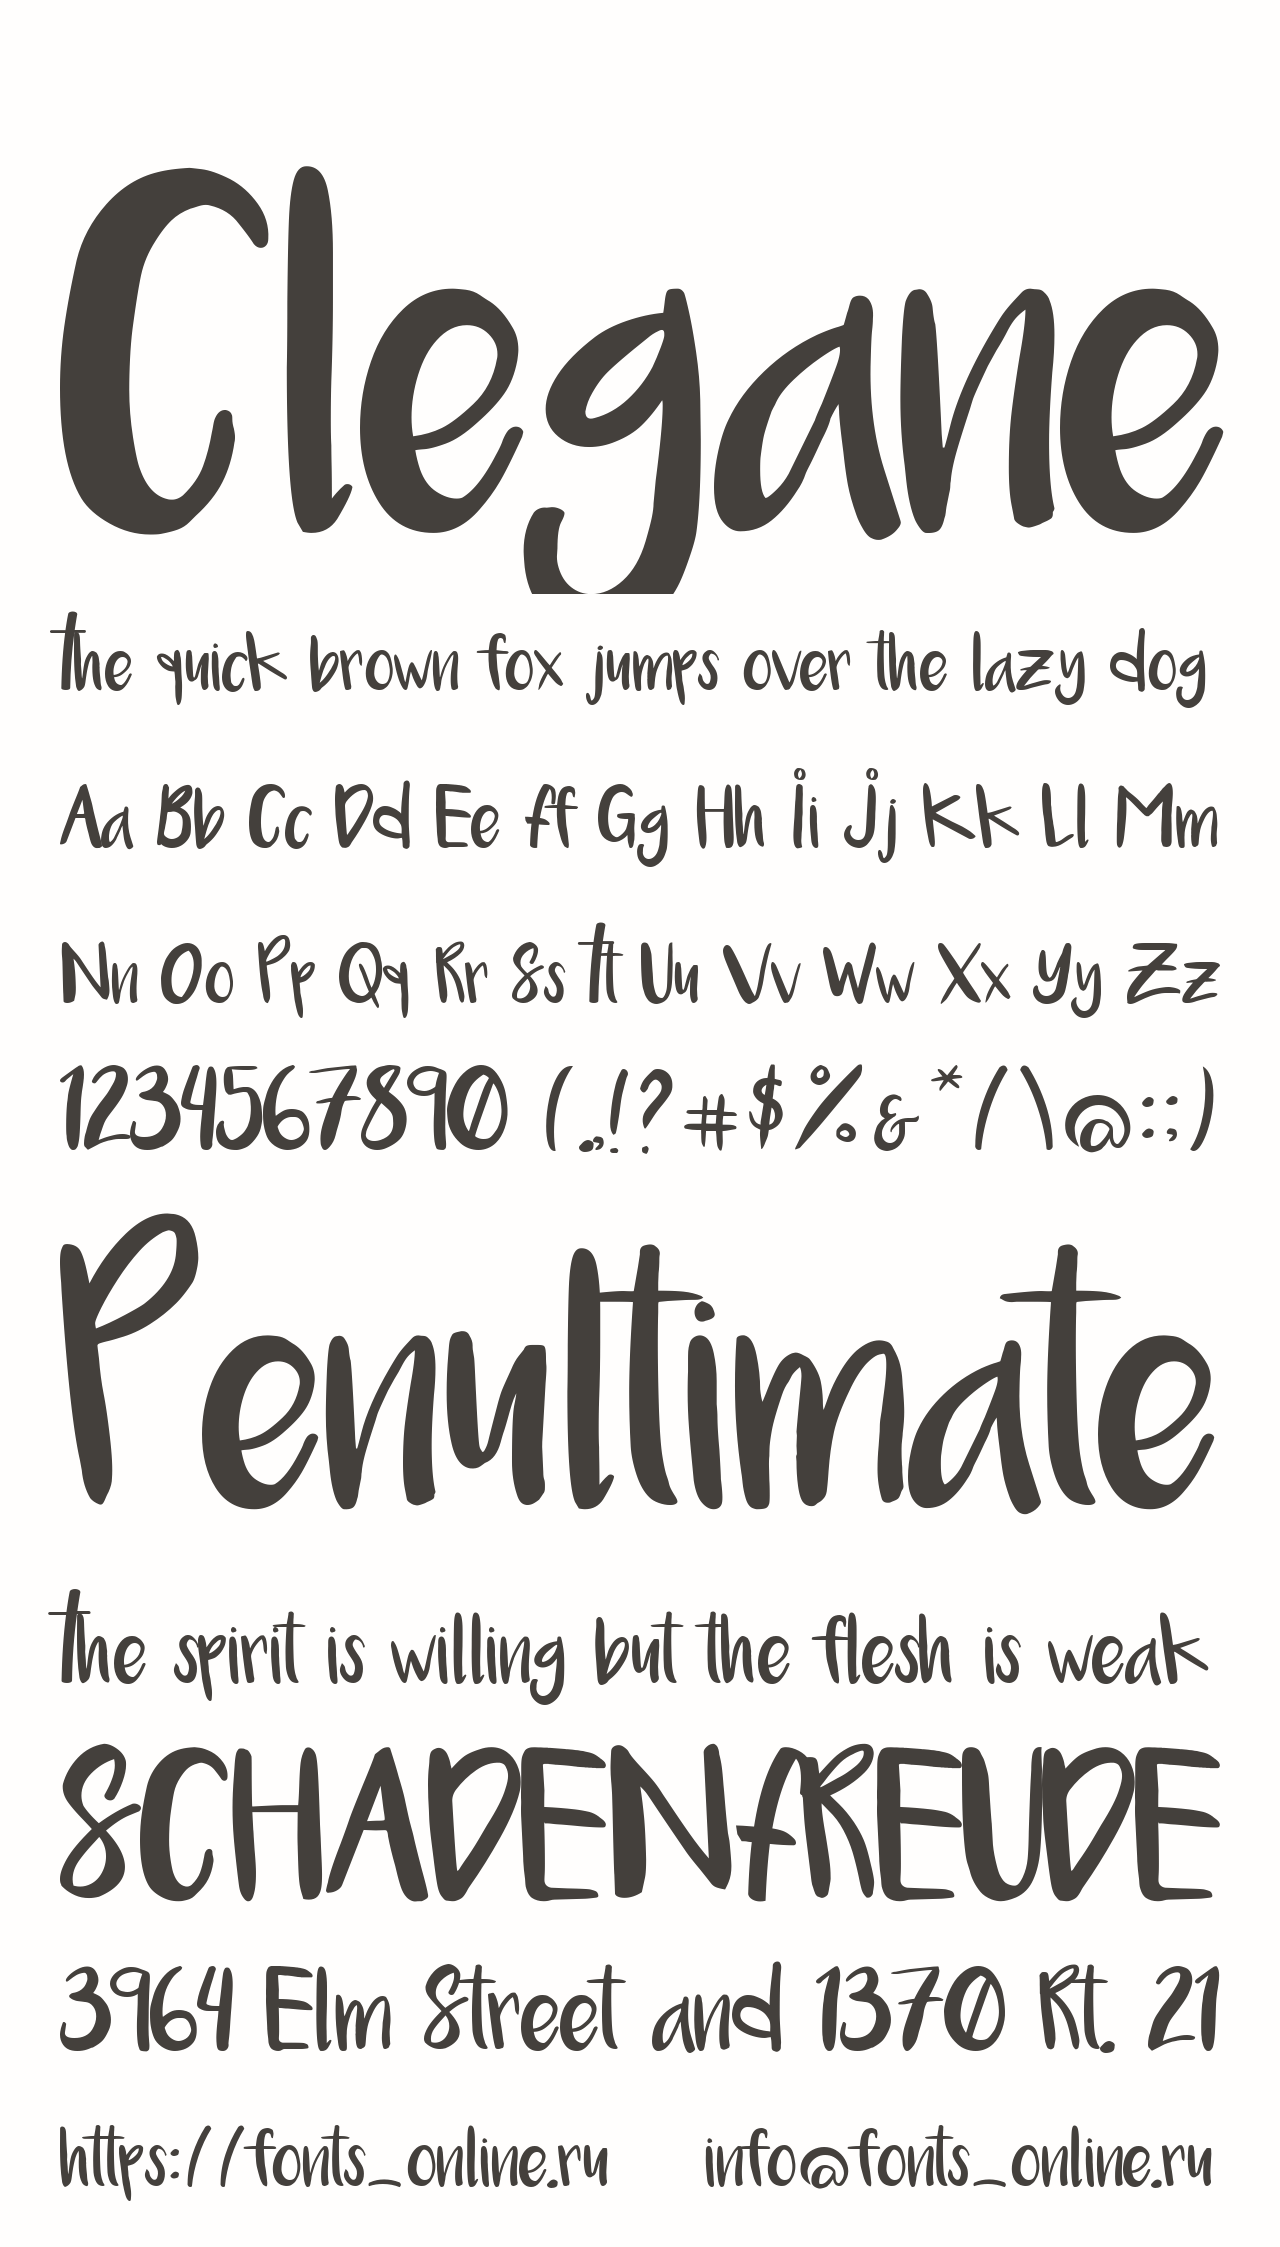 Clegane
The quick brown fox jumps over the lazy dog
Aa Bb Cc Dd Ee Ff Gg Hh Ii Jj Kk Ll Mm
Nn Oo Pp Qq Rr Ss Tt Uu Vv Ww Xx Yy Zz
1234567890 (.,!?#$%&*/\@:;)
Penultimate
The spirit is willing but the flesh is weak
SCHADENFREUDE
3964 Elm Street and 1370 Rt. 21
https://fonts_online.ru info@fonts_online.ru